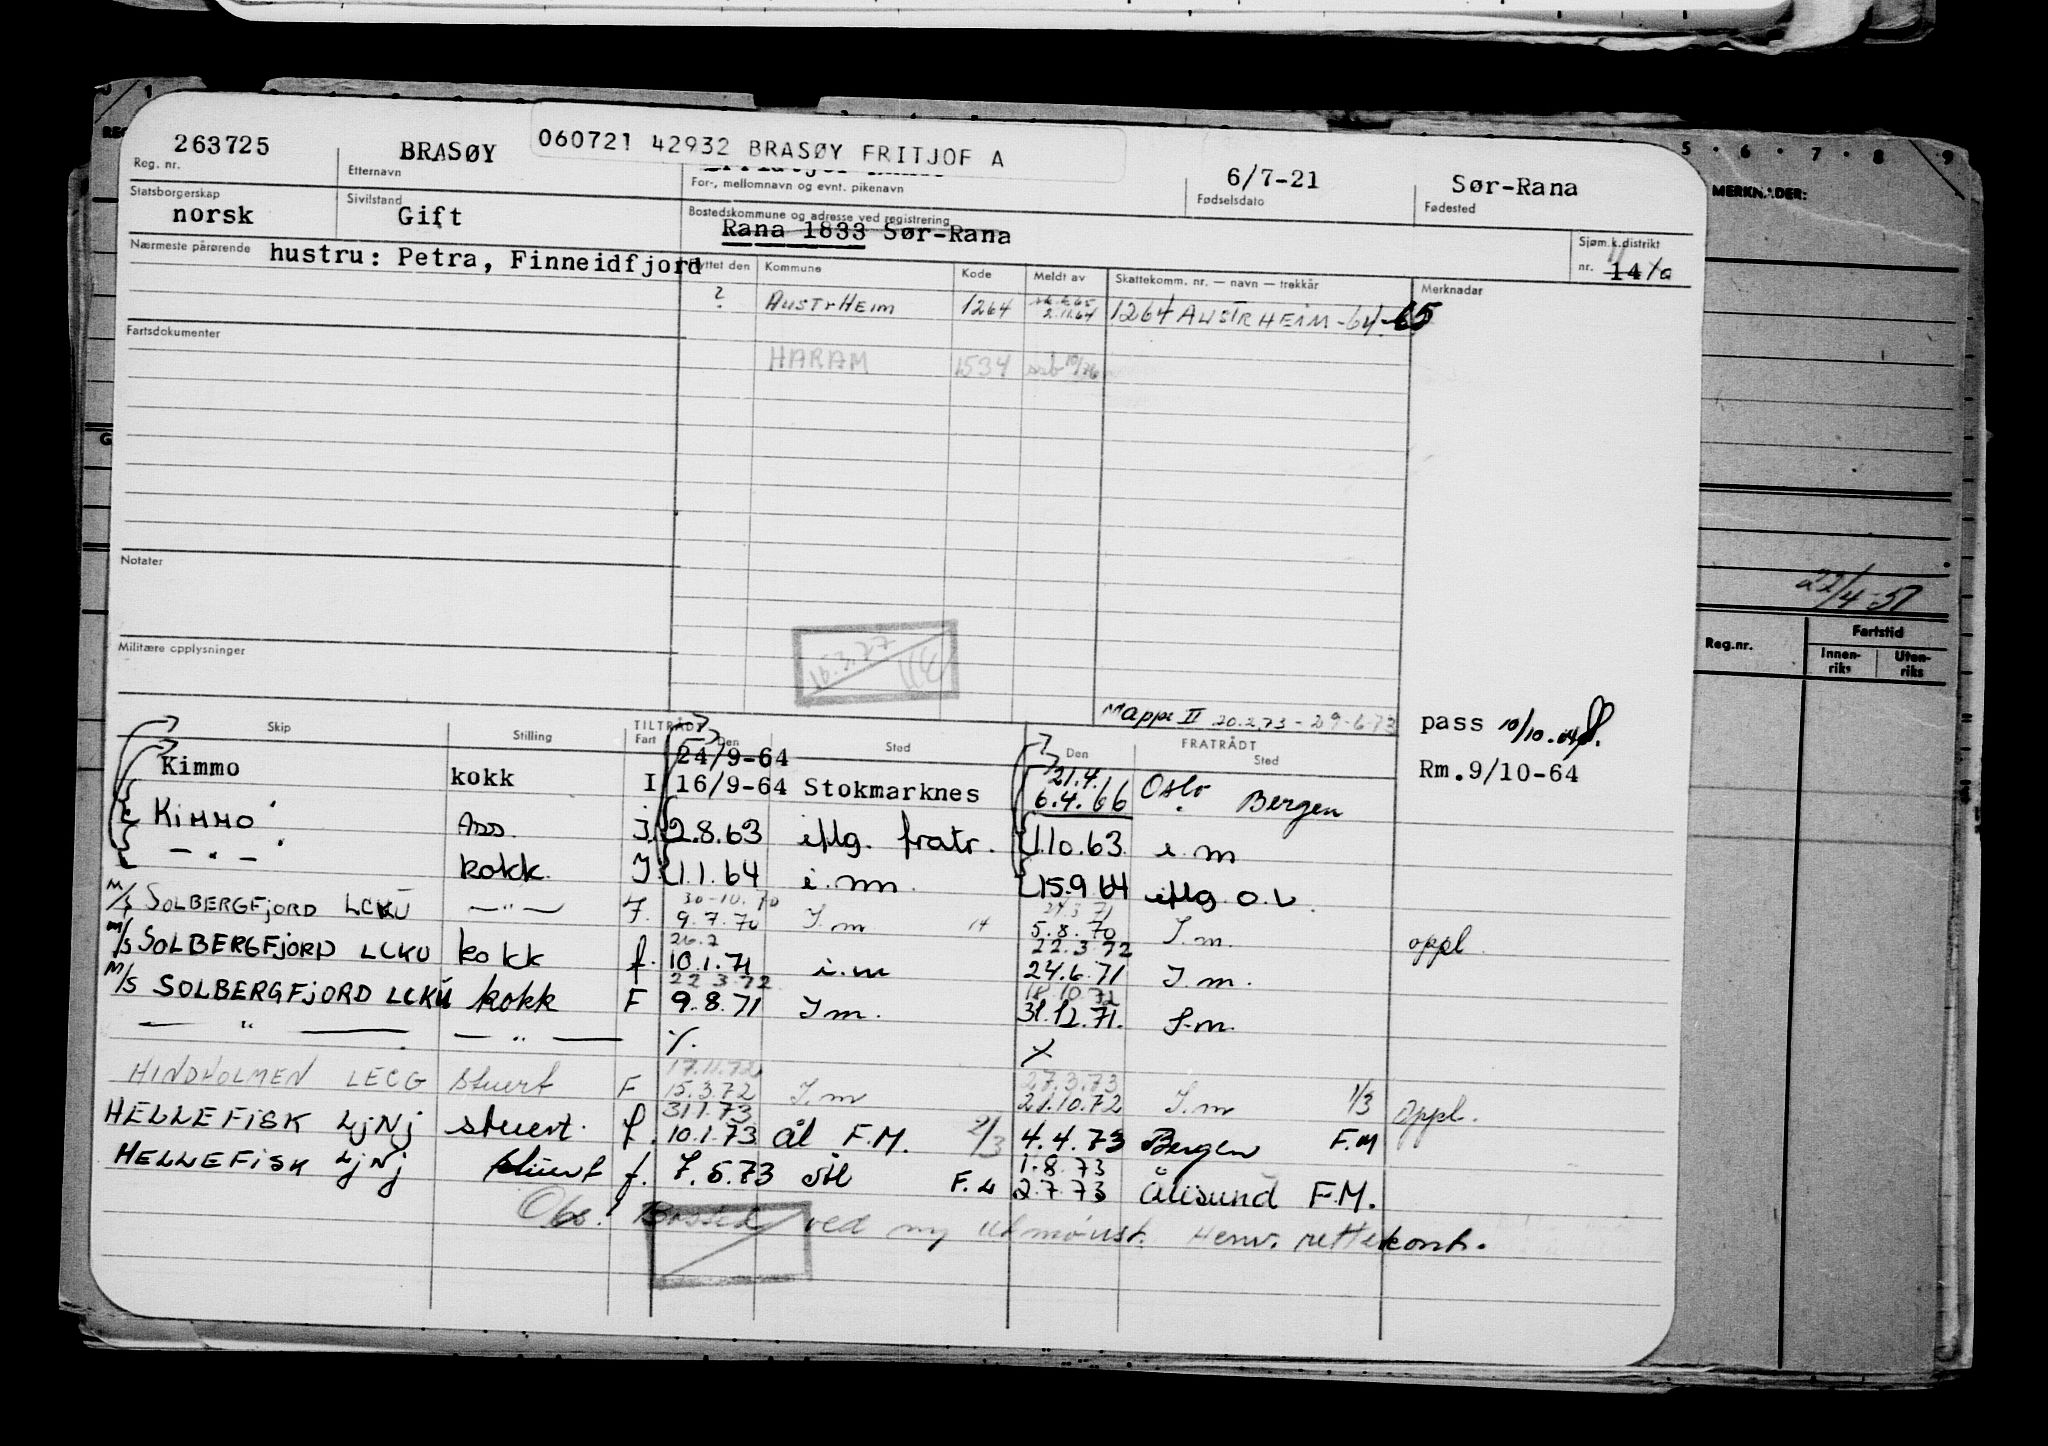 263725 BRASØY 060721 42932 BRASØY FRITJOF A 6/7-21 Sør-Rana
Reg. nr. Etternavn For-, mellomnavn og evnt. pikenavn Fødselsdato Fødested
Statsborgerskap Sivilstand Bostedskommune og adresse ved registrering
norsk Gift Rana 1833 Sør-Rana
Nærmeste pårørende hustru: Petra, Finneidfjord Sjøm.k.distrikt
nr. 14
Flyttet den Kommune Kode Meldt av Skattekomm. nr. — navn — trekkår Merknader
? AUSTRHEIM 1264 2.11.64 1264 AUSTRHEIM-64-65
Fartsdokumenter
HARAM 1534 ssb 10/76
Notater
Militære opplysninger
16.3.77
Mappe II 20.2.73 - 29.6.73
pass 10/10-64
Rm.9/10-64
Skip Stilling TILTRÅDT Fart Den Sted FRATRÅDT Den Sted
24/9-64 21.4.
Kimmo kokk I 16/9-64 Stokmarknes 6.4.66 Oslo Bergen
KIMMO Ass. I. 2.8.63 iflg. fratr. 1.10.63 i.m
— " — kokk. I. 1.1.64 i.m. 15.9 64 iflg. o.l.
30-10.70 24.3 71
M/S SOLBERGFJORD LCKU — " — F. 9.7.70 I.m 5.8.70 I.m. oppl.
26.7 22.3.72
M/S SOLBERGFJORD LCKU kokk f. 10.1.71 i.m 24.6.71 I.m.
22.3.72 18.10.72
M/S SOLBERGFJORD LCKU kokk F 9.8.71 I m. 31.12.71. I.m.
— " — — " —
17.11.72 27.3.73
HINDHOLMEN LECG stuert F 15.3.72 I.m 21.10.72 I.m 1/3 oppl.
31.1.73
HELLEFISK LJNJ stuert. f. 10.1.73 Ål F.M. 2/3 4.4.73 Bergen F.M
1.8.73
HELLEFISK LJNJ stuert f. 7.5.73 Ål 2.7.73 Ålesund F.M.
Obs! Bosted ved ny utmønst. Henv. rettekont.
MERKNADER:
22/4-51
Reg.nr. Fartstid
Innen-riks Uten-riks
5 6 7 8 9